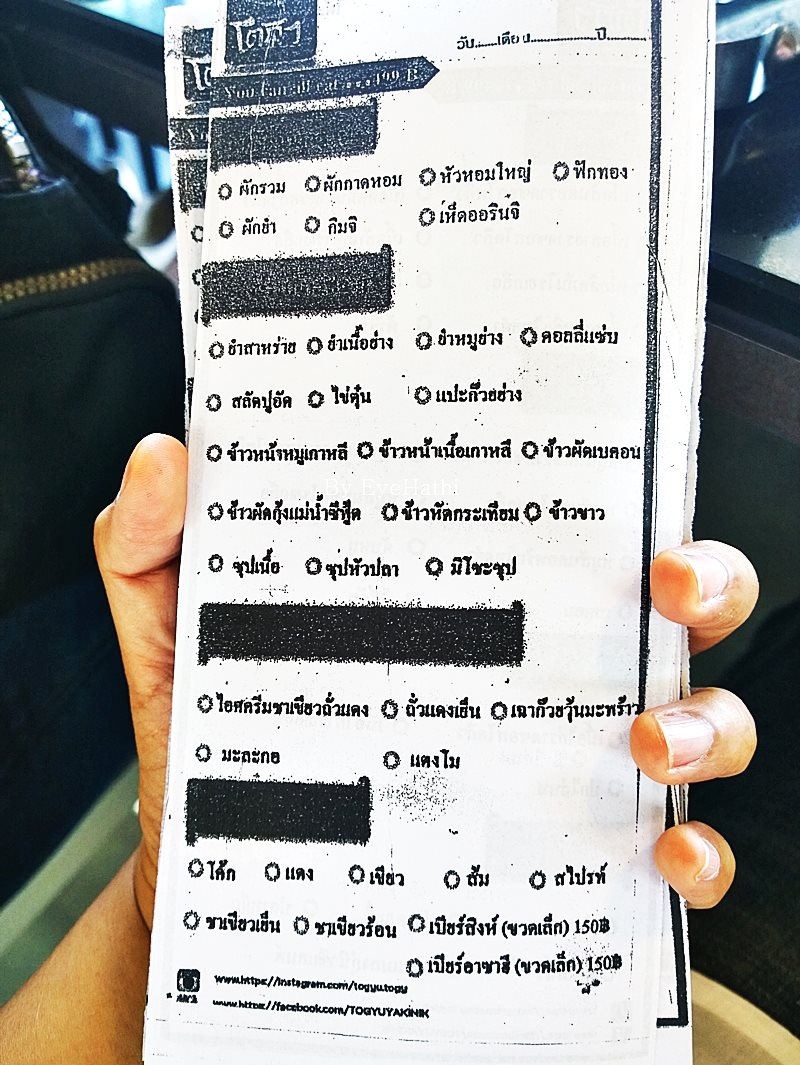 โตกิว
วัน......เดือน....................ปี............
You can all eat . . . 499 B
ผักรวม ผักกาดหอม หัวหอมใหญ่ ฟักทอง
ผักยำ กิมจิ เห็ดออรินจิ
ยำสาหร่าย ยำเนื้อย่าง ยำหมูย่าง คอลลี่แซ่บ
สลัดปูอัด ไข่ตุ๋น แปะก๊วยย่าง
ข้าวหน้าหมูเกาหลี ข้าวหน้าเนื้อเกาหลี ข้าวผัดเบคอน
By EyeHathi
ข้าวผัดกุ้งแม่น้ำซีฟู๊ด ข้าวทัดกระเทียม ข้าวขาว
ซุปเนื้อ ซุปหัวปลา มิโซะซุป
ไอศครีมชาเขียวถั่วแดง ถั่วแดงเย็น เฉาก๊วยวุ้นมะพร้าว
มะละกอ แตงโม
โค้ก แดง เขียว ส้ม สไปรท์
ชาเขียวเย็น ชาเขียวร้อน เบียร์สิงห์ (ขวดเล็ก) 150฿
เบียร์อาซาฮี (ขวดเล็ก) 150฿
www.https://instagram.com/togyu.togy
www.https://facebook.com/TOGYUYAKINIK